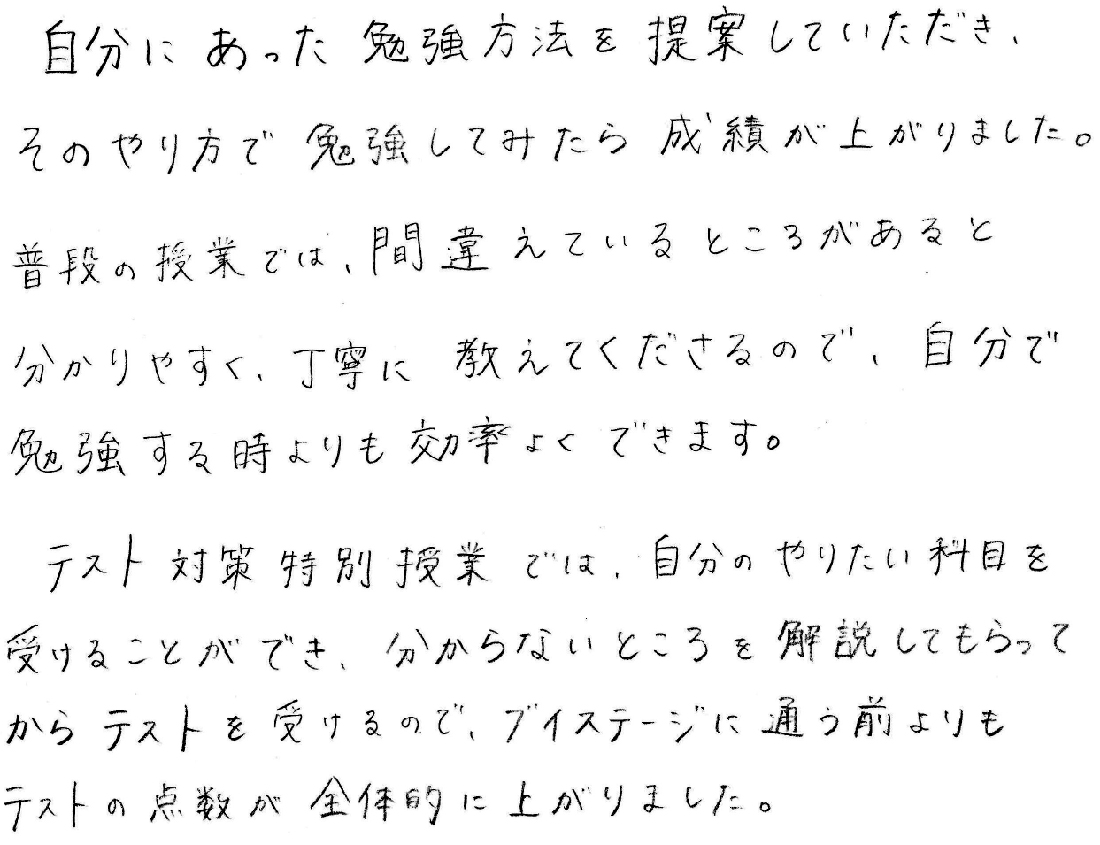 自分にあった勉強方法を提案していただき、
そのやり方で勉強してみたら成績が上がりました。
普段の授業では、間違えているところがあると
分かりやすく、丁寧に教えてくださるので、自分で
勉強する時よりも効率よくできます。
テスト対策特別授業では、自分のやりたい科目を
受けることができ、分からないところを解説してもらって
からテストを受けるので、ブイステージに通う前よりも
テストの点数が全体的に上がりました。